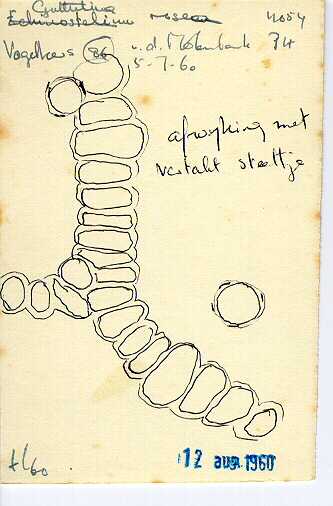 Guttulina
Echinostelium rosea 4054
Vogelkers 86 v.d. Molenbank 74
5-7-60
afwyking met
vertakt steeltje
12 aug 1960